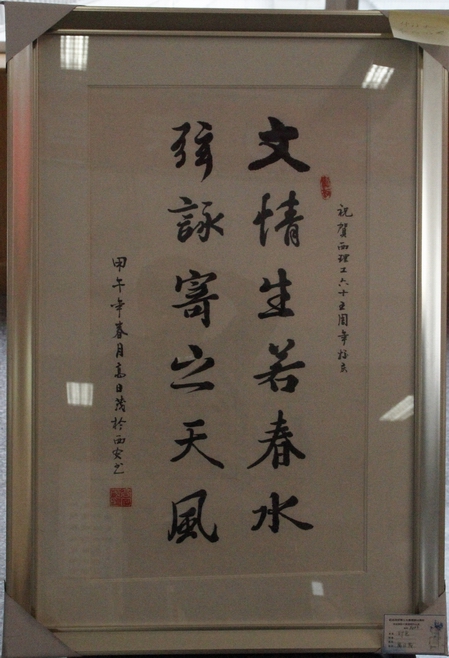 祝賀西理工六十五周年校庆
文情生若春水
弦詠寄之天風
甲午年春月高日茂於西安